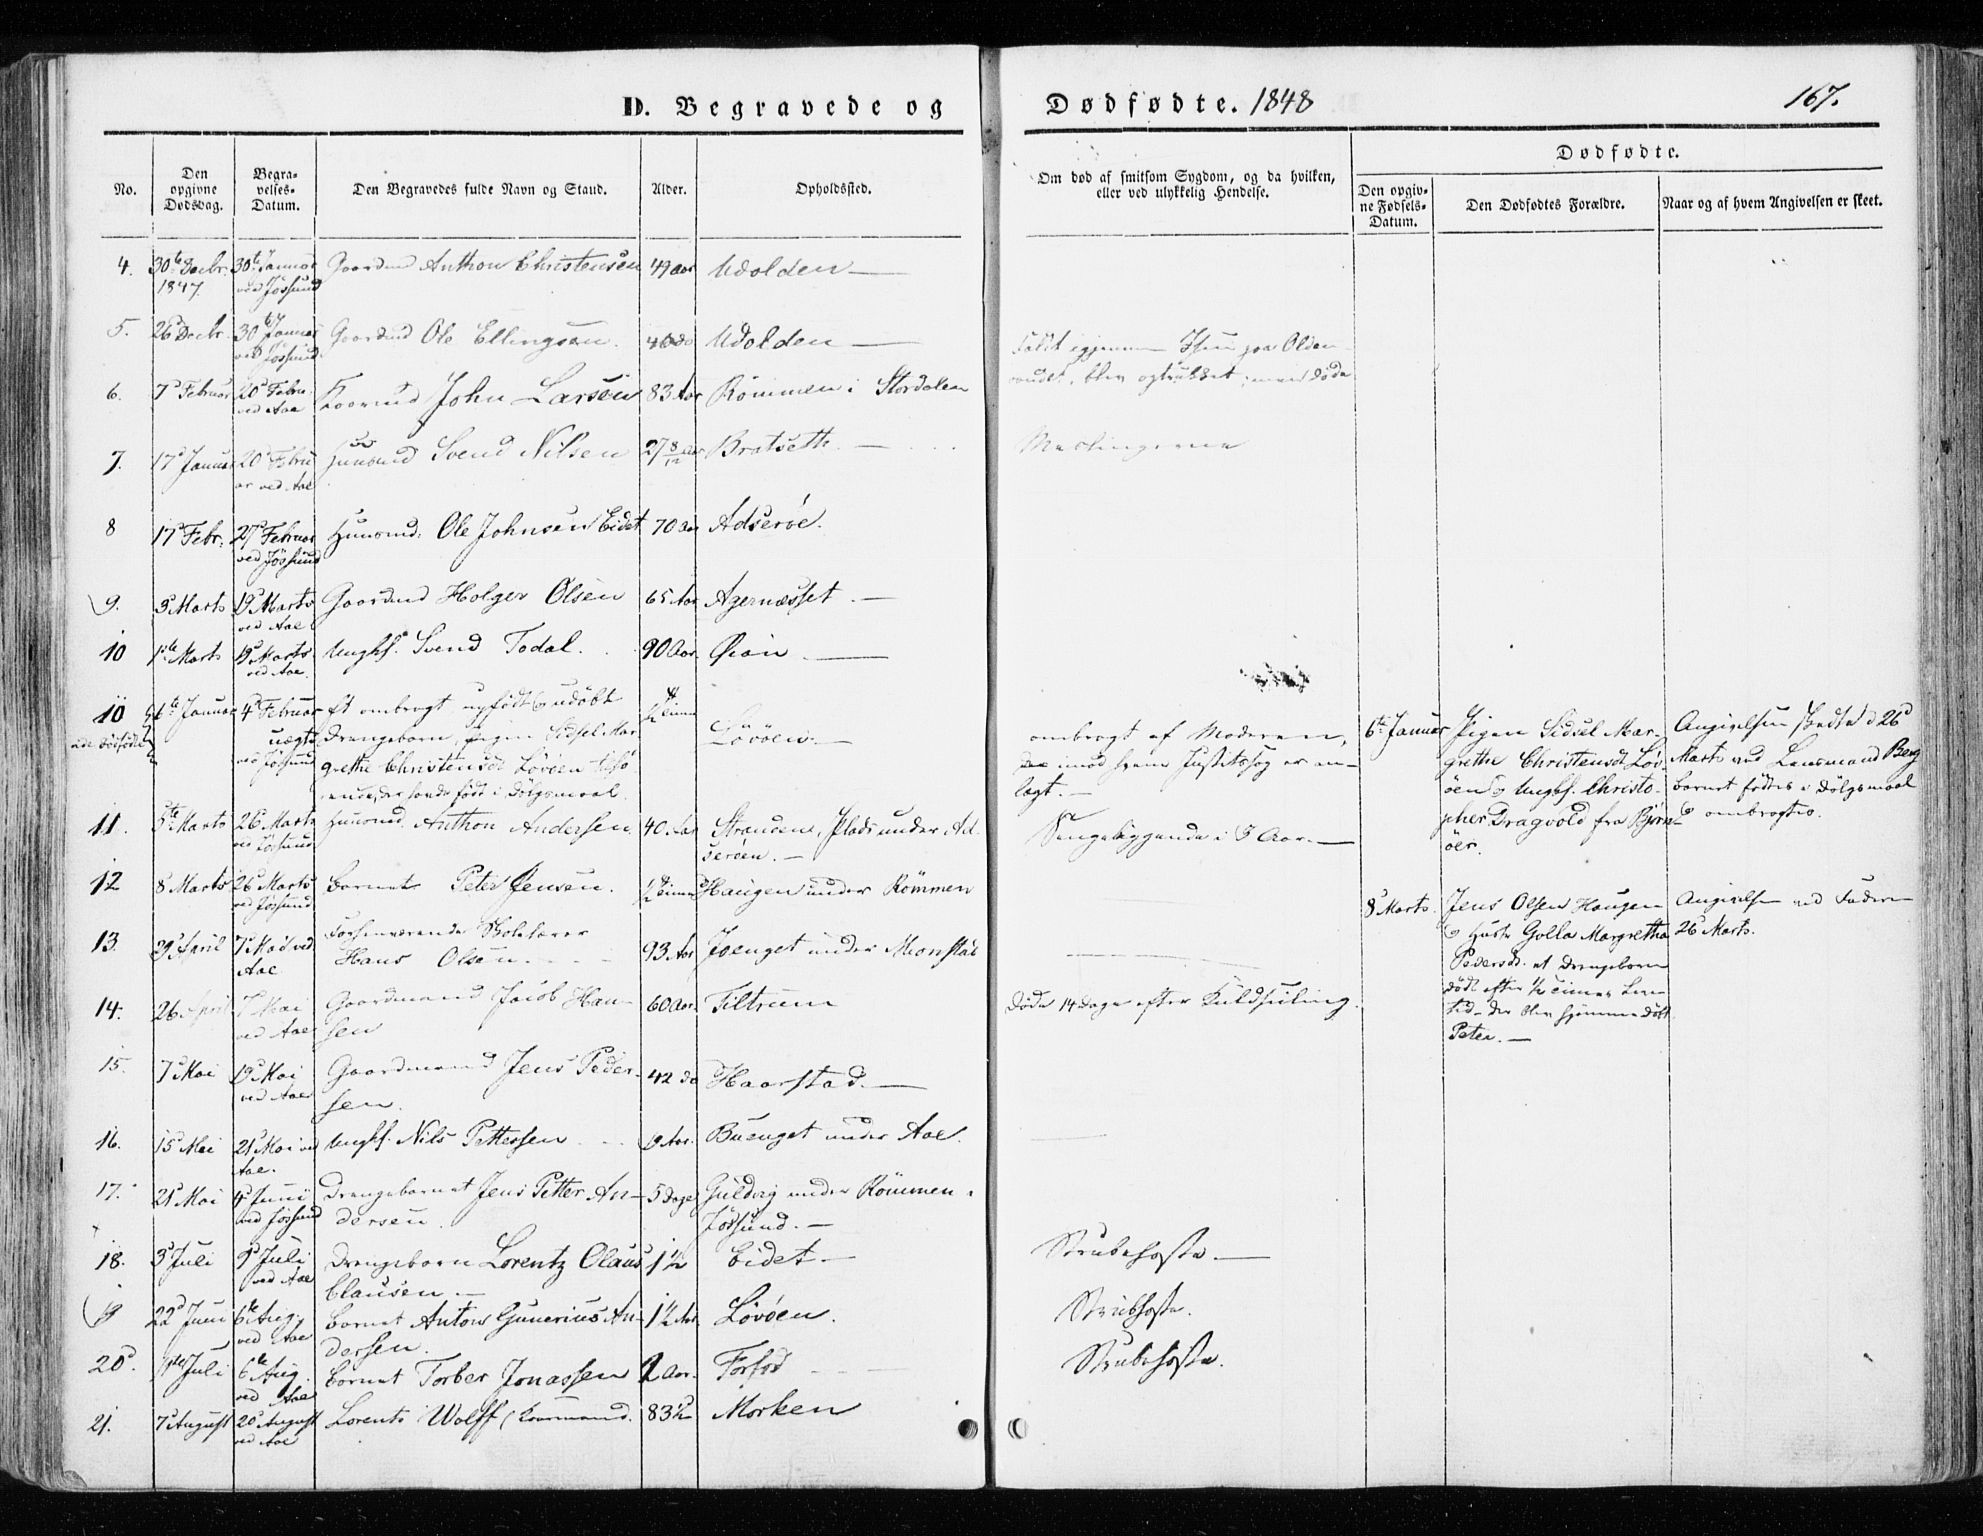 D. Begravede og Dødfødte. 1848
167.
No.
Den opgivne Dødsdag.
Begravelses-Datum.
Den Begravedes fulde Navn og Stand.
Alder.
Opholdssted.
Om død af smitsom Sygdom, og da hvilken, eller ved ulykkelig Hendelse.
Dødfødte.
Den opgivne Fødsels-Datum.
Den Dødfødtes Forældre.
Naar og af hvem Angivelsen er skeet.
4. 30te Decbr. 1847. 30te Januar ved Jössund Gaardmd Anthon Christensen 49 Aar Udolden
5. 26d Decbr. 30te Januar ved Jössund Gaardmd Ole Ellingsen. 46 do Udolden Faldt igjennem Isen paa Olden-vandet, blev optrukket, men døde
6. 7d Februar 20d Febru. ved Aae John Larsen 83 Aar Römmen i Stordalen
7. 17d Januar 20d Februar ved Aae Huusmd Svend Nilsen 27 8/12 Aar Bratseth. Meslingerne
8 17d Febr. 27d Februar ved Jössund Huusmd. Ole Johnsen Eidet 70 Aar Adseröe.
9. 3d Marts 19d Marts ved Aae Gaardmd Holger Olsen 65 Aar Agernæsset.
10 1ste Marts 19d Marts ved Aae. Ungkf. Svend Todal. 90 Aar. Øian
10 6te Januar 4d Februar ved Jössund Et ombragt nyfödt & udöbt uægte Drengebarn, Pigen Sidsel Margrethe Christensdt Lövöen tilhörende, der havde födt i Dölgsmaal. 1/2 Time Lövöen. ombragt af Moderen, imod hvem Justitssag er anlagt. 6te Januar Pigen Sidsel Margrethe Christensdt Lövöen & Ungkf. Christopher Dragvold fra Björnöer. Angivelsen skedte d 26d Marts ved Lensmand Berg Barnet födtes i Dölgsmaal & ombragtes.
11. 5te Marts 26d Marts ved Jössund Huusmd. Anthon Andersen 40 Aar Strandene, Plads under Adseröen. Sengeliggende i 3 Aar.
12 8d Marts 26d Marts ved Jössund Barnet Peter Jensen. 1/2 Time Haugen under Römmen 8 Marts. Jens Olsen Haugen & Hustr Golla Margretha Pedersdt. et Drengebarn död efter 1/2 Times Levetid - der blev hjemmedöbt Peter. Angivelse ved Faderen 26d Marts.
13. 29d April 7d Mai ved Aae Forhenværende Skolelærer Hans Olsen 93 Aar under
14. 26 April 7d Mai ved Aae Gaardmand Jacob Hansen 60 Aar. Tiltrum Döde 14 Dage efter
15. 7d Mai 19d Mai ved Aae Gaardmand Jens Pedersen. 42 do Haarstad.
16. 15d Mai 21d Mai ved Aae. Ungkf. Nils Pettersen Aar. Buenget under Aae.
17. 21d Mai 4d Junii ved Jössund Drengebarnet Jens Petter Andersen. 5 Dage Guldvig under Römmen i Jössund.
18. 3d Juli 9d Juli ved Aae Drengebarn Lorentz Olaus Clausen. 1 1/2 Eidet Strubehoste.
19 22d Juni 6te Aug. ved Aae Barnet Anton Gunerius Andersen. 1 1/2 Aar. Lövöen. Strubhoste.
20d. 11te Juli 6te Aug. ved Aae Barnet Torber Jonassen 1 Aar. Forfod Strubehoste.
21. 7d August 20d August ved Aae Lorents Wolff 83 1/2 Morken